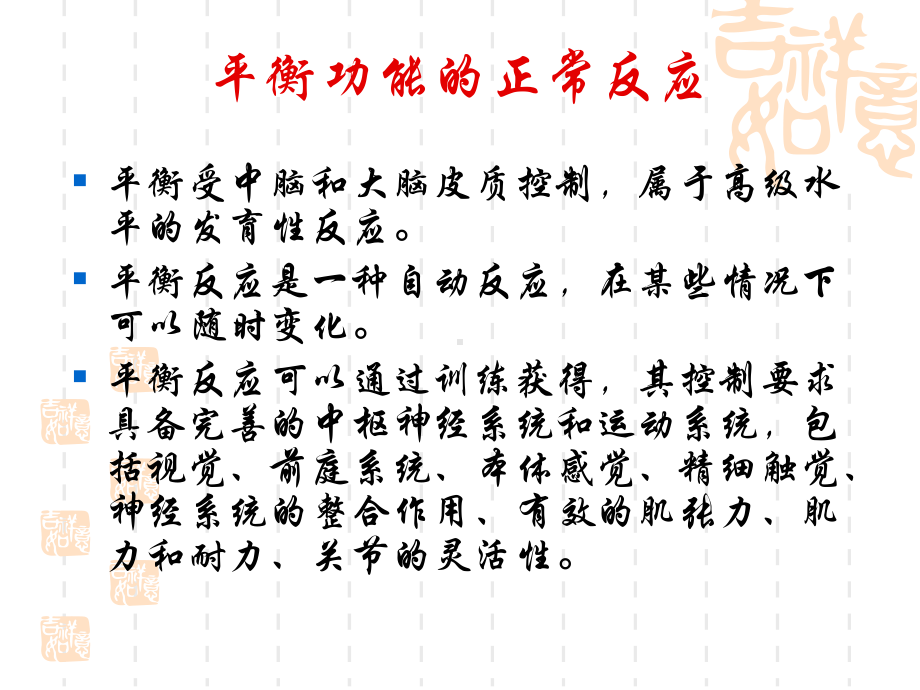 吉祥如意
平衡功能的正常反应
平衡受中脑和大脑皮质控制，属于高级水
平的发育性反应。
平衡反应是一种自动反应，在某些情况下
可以随时变化。
平衡反应可以通过训练获得，其控制要求
具备完善的中枢神经系统和运动系统，包
括视觉、前庭系统、本体感觉、精细触觉、
神经系统的整合作用、有效的肌张力、肌
力和耐力、关节的灵活性。
吉祥如意
吉祥如意
吉祥如意
吉祥如意
吉祥如意
吉祥如意